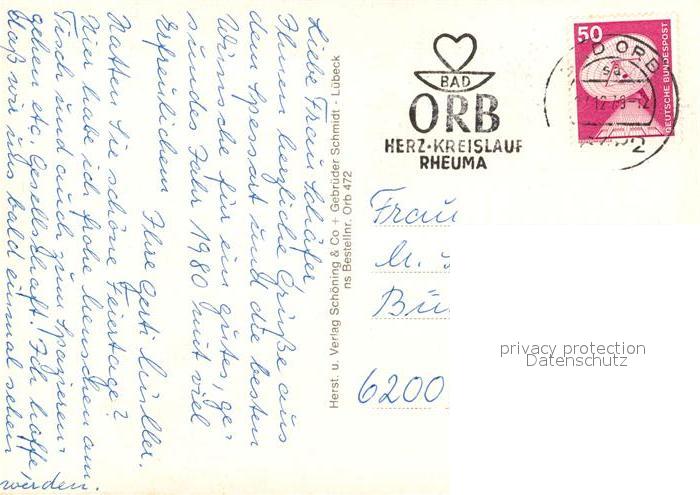 Liebe Frau Schäfer
Ihnen herzliche Grüße aus
dem Spessart und die besten
Wünsche für ein gutes, ge-
sundes Jahr 1980 mit viel
Erfreulichem Ihre Gerti Müller.
Hatten Sie schöne Feiertage?
Hier habe ich frohe Menschen am
Tisch und auch zum Spazieren-
gehen etc. Gesellschaft! Ich hoffe,
daß wir uns bald einmal sehen
werden.
Herst. u. Verlag Schöning & Co + Gebrüder Schmidt - Lübeck
ns Bestellnr. Orb 472
BAD
ORB
HERZ·KREISLAUF
RHEUMA
50
DEUTSCHE BUNDESPOST
D ORB
Frau
6200
privacy protection
Datenschutz